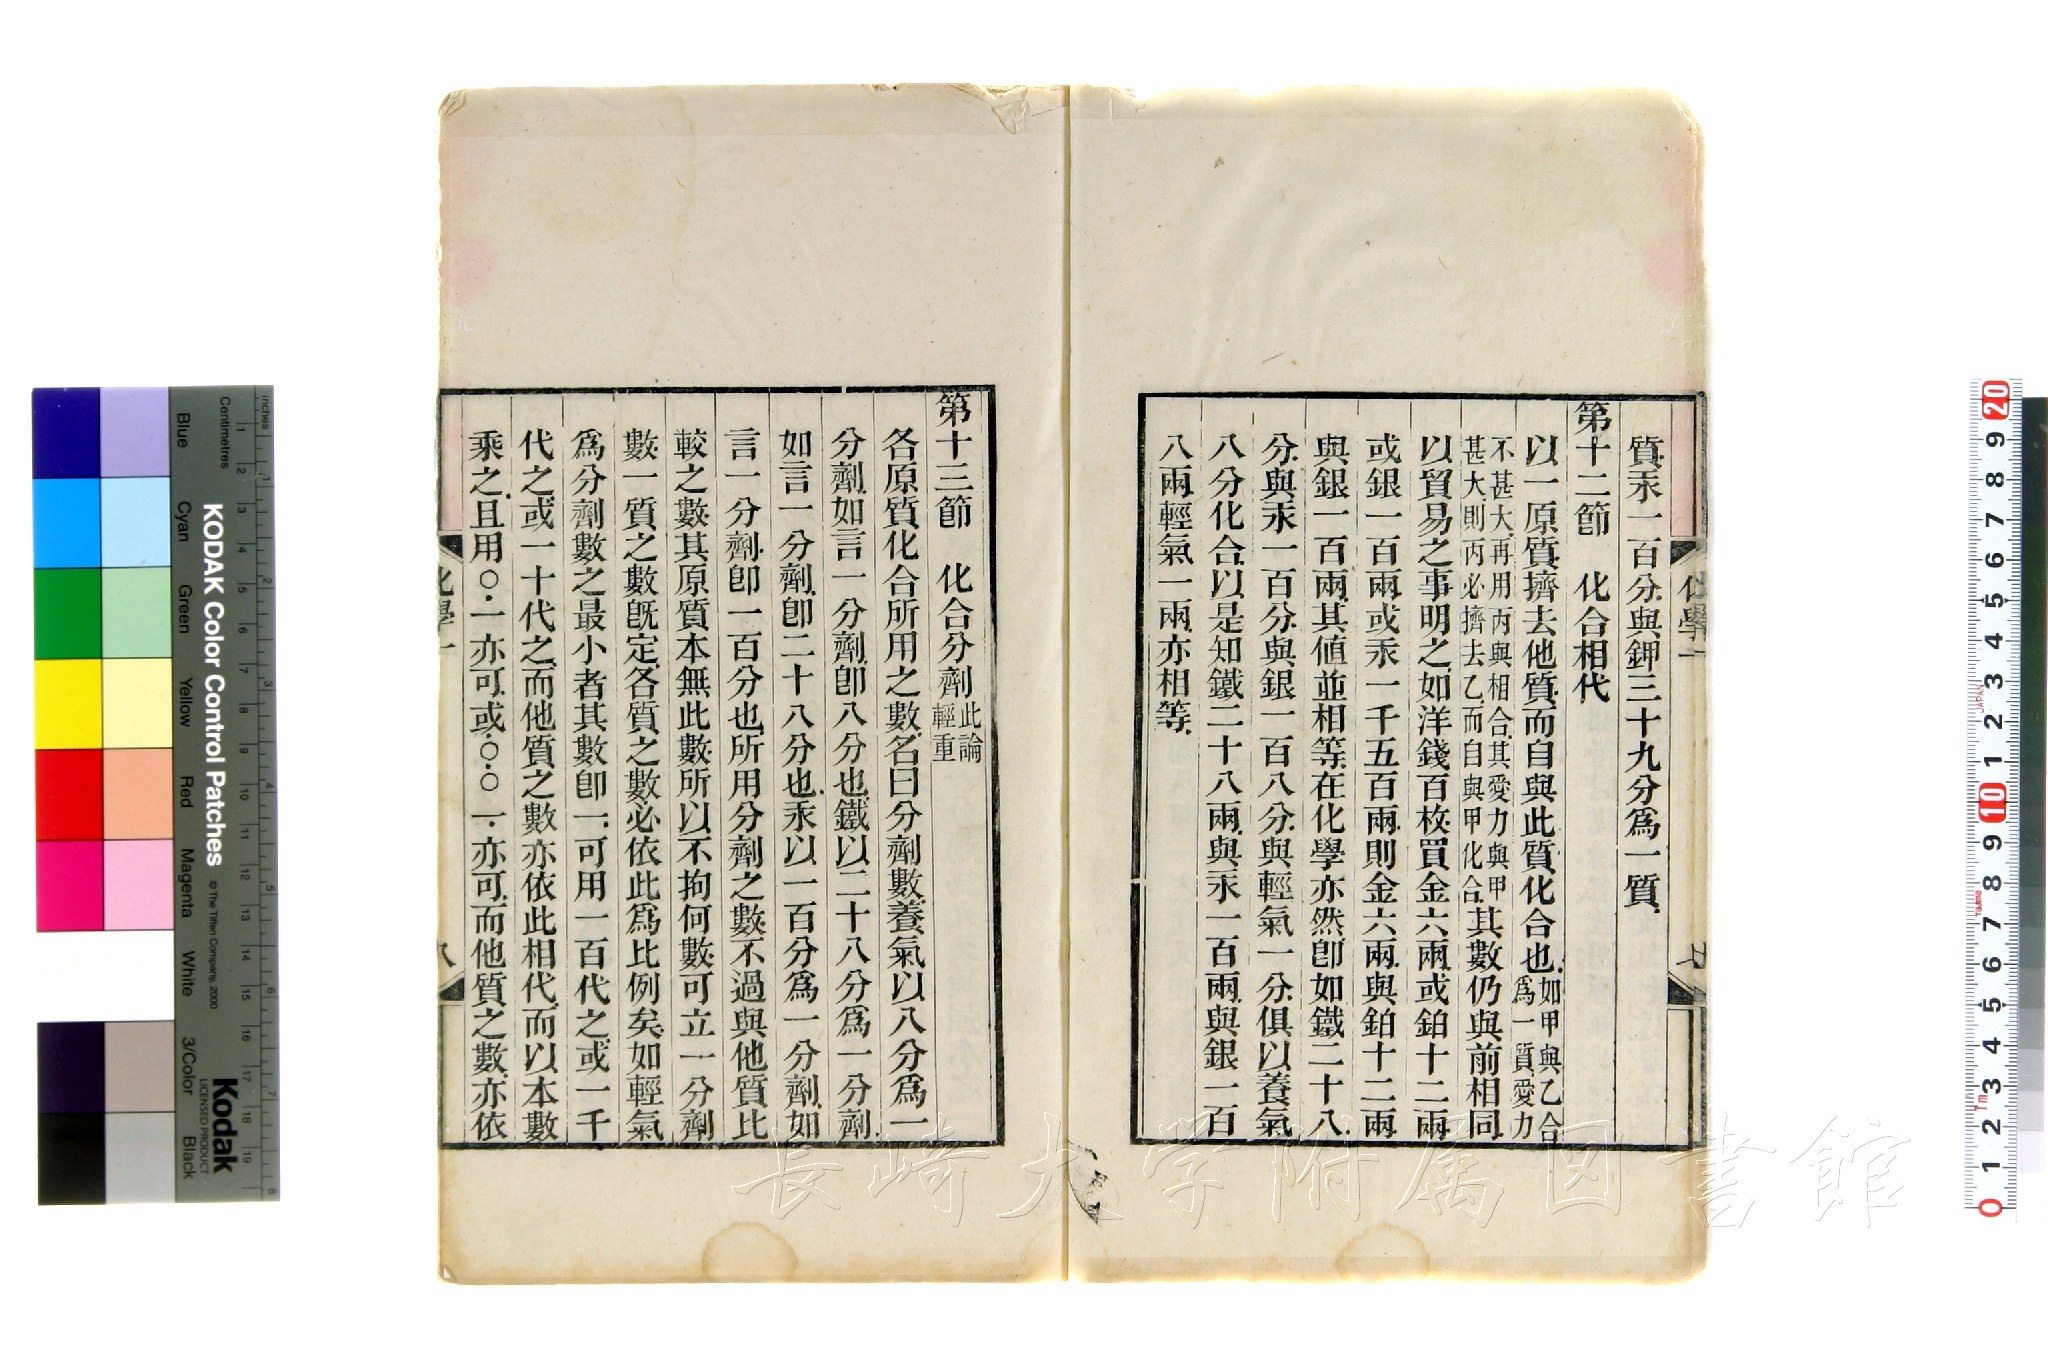 質汞一百分與鉀三十九分爲一質
第十二節　化合相代
以一原質擠去他質而自與此質化合也如甲與乙合爲一質愛力
不甚大再用丙與相合其愛力與甲甚大則丙必擠去乙而自與甲化合其數仍與前相同
以貿易之事明之如洋錢百枚買金六兩或鉑十二兩
或銀一百兩或汞一千五百兩則金六兩與鉑十二兩
與銀一百兩其值並相等在化學亦然卽如鐵二十八
分與汞一百分與銀一百八分與輕氣一分俱以養氣
八分化合以是知鐵二十八兩與汞一百兩與銀一百
八兩輕氣一兩亦相等
化學一
七
第十三節　化合分劑此論輕重
各原質化合所用之數名曰分劑數養氣以八分爲一
分劑如言一分劑卽八分也鐵以二十八分爲一分劑
如言一分劑卽二十八分也汞以一百分爲一分劑如
言一分劑卽一百分也所用分劑之數不過與他質比
較之數其原質本無此數所以不拘何數可立一分劑
數一質之數旣定各質之數必依此爲比例矣如輕氣
爲分劑數之最小者其數卽一可用一百代之或一千
代之或一十代之而他質之數亦依此相代而以本數
乘之且用○·一亦可或○·○一亦可而他質之數亦依
化學一
八
長崎大学附属図書館
KODAK Color Control Patches
© The Tiffen Company, 2000
Kodak
LICENSED PRODUCT
inches
Centimetres
Blue
Cyan
Green
Yellow
Red
Magenta
White
3/Color
Black
JAPAN